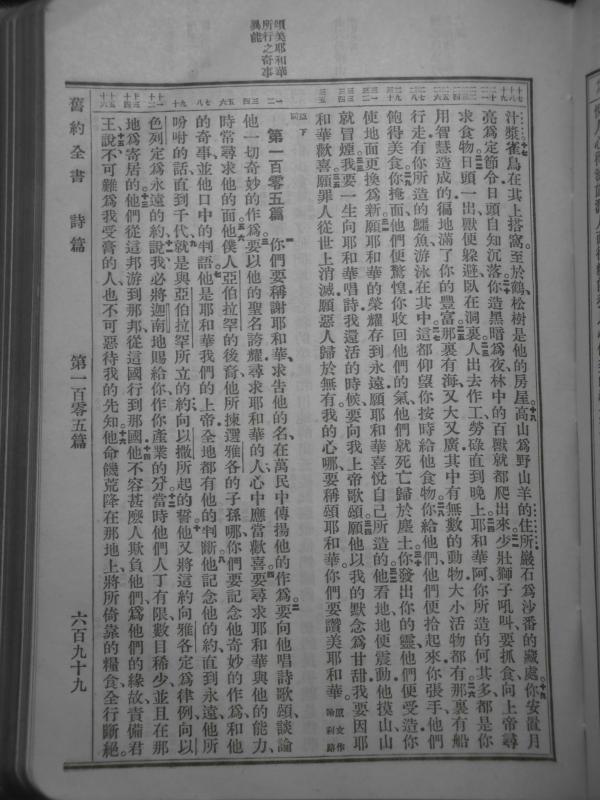 頌美耶和華
所行之奇事
異能
汁漿雀鳥在其上搭窩至於鶴松樹是他的房屋高山爲野山羊的住所巖石爲沙番的藏處你安置月
亮爲定節令日頭自知沉落你造黑暗爲夜林中的百獸就都爬出來少壯獅子吼叫要抓食向上帝尋
求食物日頭一出獸便躱避臥在洞裏人出去作工勞碌直到晚上耶和華阿你所造的何其多都是你
用智慧造成的徧地滿了你的豐富那裏有海又大又廣其中有無數的動物大小活物都有那裏有船
行走有你所造的鱷魚游泳在其中這都仰望你按時給他食物你給他們他們便拾起來你張手他們
飽得美食你掩面他們便驚惶你收回他們的氣他們就死亡歸於塵土你發出你的靈他們便受造你
使地面更換爲新願耶和華的榮耀存到永遠願耶和華喜悅自己所造的他看地地便震動他摸山山
就冒煙我要一生向耶和華唱詩我還活的時候要向上帝歌頌願他以我的默念爲甘甜我要因耶
和華歡喜願罪人從世上消滅願惡人歸於無有我的心哪要稱頌耶和華你們要讚美耶和華 原文作哈利路
下同
第一百零五篇 你們要稱謝耶和華求告他的名在萬民中傳揚他的作爲要向他唱詩歌頌談論
他一切奇妙的作爲要以他的聖名誇耀尋求耶和華的人心中應當歡喜要尋求耶和華與他的能力
時常尋求他的面他僕人亞伯拉罕的後裔他所揀選雅各的子孫哪你們要記念他奇妙的作爲和他
的奇事並他口中的判語他是耶和華我們的上帝全地都有他的判斷他記念他的約直到永遠他所
吩咐的話直到千代就是與亞伯拉罕所立的約向以撒所起的誓他又將這約向雅各定爲律例向以
色列定爲永遠的約說我必將迦南地賜給你作你產業的分當時他們人丁有限數目稀少並且在那
地爲寄居的他們從這邦游到那邦從這國行到那國他不容甚麼人欺負他們爲他們的緣故責備君
王說不可難爲我受膏的人也不可惡待我的先知他命饑荒降在那地上將所倚靠的糧食全行斷絕
舊約全書 詩篇 第一百零五篇 六百九十九